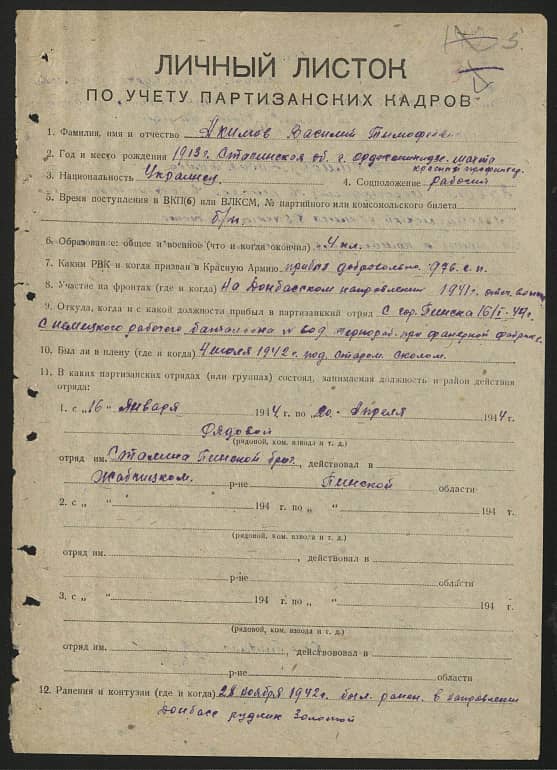 5.
ЛИЧНЫЙ ЛИСТОК
ПО УЧЕТУ ПАРТИЗАНСКИХ КАДРОВ
1. Фамилия, имя и отчество Акимов Василий Тимофеевич
2. Год и место рождения 1913 г. Сталинская об. г. Орджоникидзе. шахта
красный профинтер.
3. Национальность Украинец 4. Соцположение рабочий
5. Время поступления в ВКП(б) или ВЛКСМ, № партийного или комсомольского билета
б/п
6. Образование: общее и военное (что и когда окончил) 4 кл.
7. Каким РВК и когда призван в Красную Армию прибыл добровольно 976. с. п.
8. Участие на фронтах (где и когда) на Донбасском направлении 1941 г. отеч. война
9. Откуда, когда и с какой должности прибыл в партизанский отряд С гор. Пинска 16/I-44 г.
С немецкого рабочего батальона при фанерной фабрике.
10. Был ли в плену (где и когда) 4 июля 1942 г. под Старом. Осколом.
11. В каких партизанских отрядах (или группах) состоял, занимаемая должность и район действия
отряда:
1. с „16 “ Января 1944 г. по 20 - Апреля 1944 г.
Рядовой
(рядовой, ком. взвода и т. д.)
отряд им. Сталина Пинской бриг. , действовал в
Жабчицком. р-не Пинской области
2. с „ “ 194 г. по „ “ 194 г.
(рядовой, ком. взвода и т. д.)
отряд им. , действовал в
р-не области
3. с „ “ 194 г. по „ “ 194 г.
(рядовой, ком. взвода и т. д.)
отряд им. , действовал в
р-не области
12. Ранения и контузии (где и когда) 28 ноября 1942 г. был. ранен. в направлении
Донбасс рудник Золотой